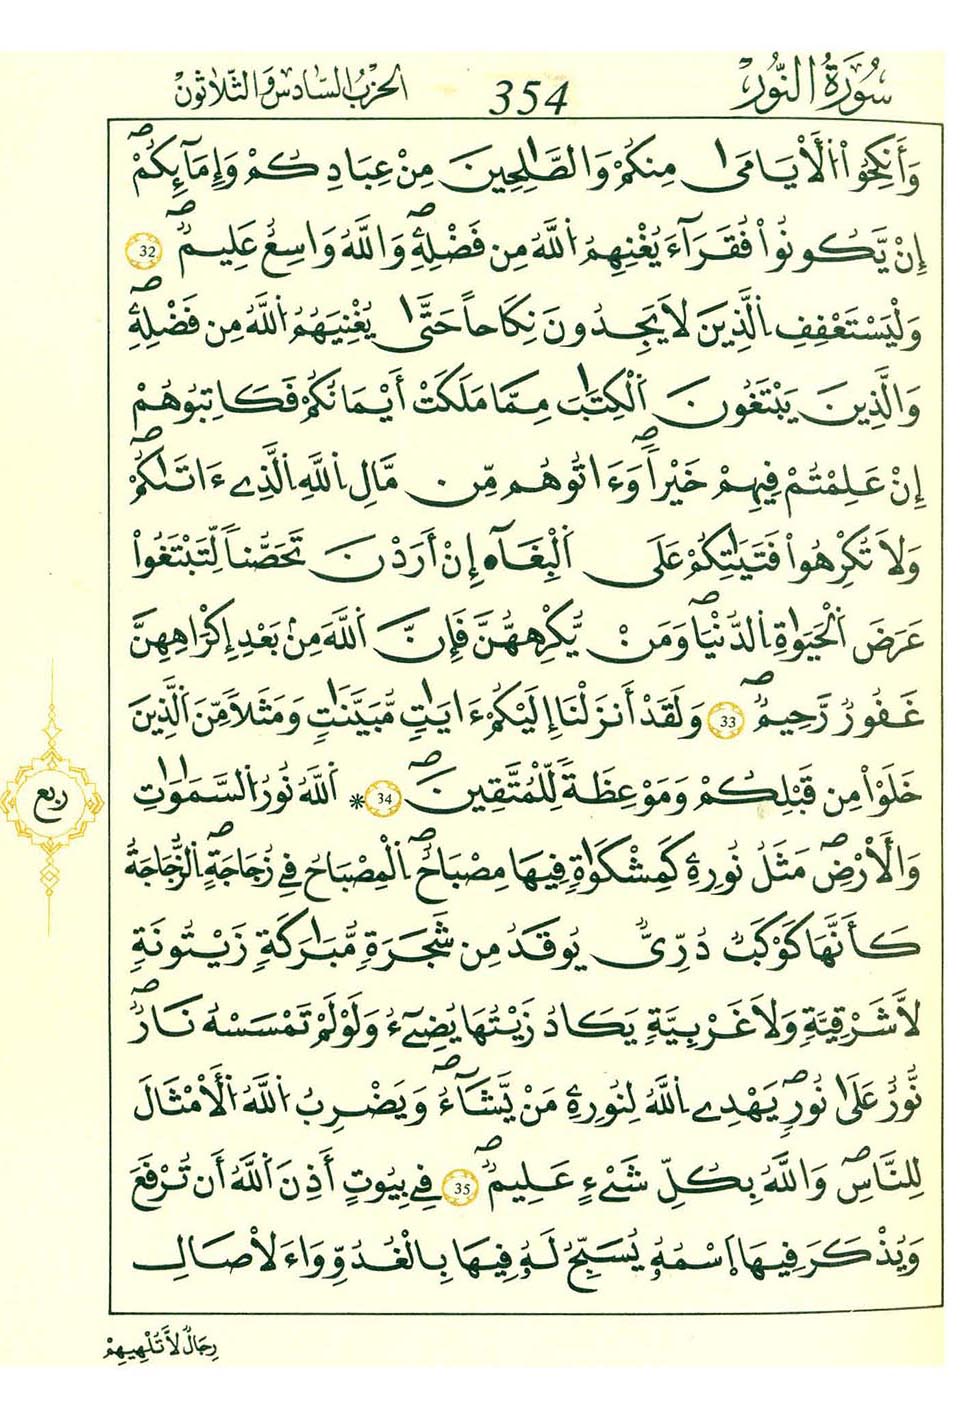 سُورَةُ النُّورِ 354 الحِزْبُ السَّادِسُ وَالثَّلاَثُونْ
وَأَنكِحُواْ اُ۬لْأَيَٰمَىٰ مِنكُمْ وَالصَّٰلِحِينَ مِنْ عِبَادِكُمْ وَإِمَآئِكُمُۥٓ
إِنْ يَّكُونُواْ فُقَرَآءَ يُغْنِهِمُ اُ۬للَّهُ مِن فَضْلِهِۦ وَاللَّهُ وَاسِعٌ عَلِيمٌ 32
وَلْيَسْتَعْفِفِ اِ۬لَّذِينَ لاَ يَجِدُونَ نِكَاحاً حَتَّىٰ يُغْنِيَهُمُ اُ۬للَّهُ مِن فَضْلِهِۦ
وَالَّذِينَ يَبْتَغُونَ اَ۬لْكِتَٰبَ مِمَّا مَلَكَتْ أَيْمَٰنُكُمْ فَكَاتِبُوهُمْ
إِنْ عَلِمْتُمْ فِيهِمْ خَيْراً وَءَاتُوهُم مِّن مَّالِ اِ۬للَّهِ اِ۬لَّذِےٓ ءَاتَىٰكُمْ
وَلاَ تُكْرِهُواْ فَتَيَٰتِكُمْ عَلَى اَ۬لْبِغَآءِ اِنْ أَرَدْنَ تَحَصُّناً لِّتَبْتَغُواْ
عَرَضَ اَ۬لْحَيَوٰةِ اِ۬لدُّنْيَا وَمَنْ يُّكْرِههُّنَّ فَإِنَّ اَ۬للَّهَ مِنۢ بَعْدِ إِكْرَٰهِهِنَّ
غَفُورٌ رَّحِيمٌ 33 وَلَقَدْ أَنزَلْنَا إِلَيْكُمْ ءَايَٰتٍ مُّبَيَّنَٰتٍ وَمَثَلاً مِّنَ اَ۬لَّذِينَ
خَلَوْاْ مِن قَبْلِكُمْ وَمَوْعِظَةً لِّلْمُتَّقِينَ 34 * اَ۬للَّهُ نُورُ اُ۬لسَّمَٰوَٰتِ
وَالْأَرْضِ مَثَلُ نُورِهِۦ كَمِشْكَوٰةٍ فِيهَا مِصْبَاحٌ اِ۬لْمِصْبَاحُ فِے زُجَاجَةٍ اِ۬لزُّجَاجَةُ
كَأَنَّهَا كَوْكَبٌ دُرِّيٌّ يُوقَدُ مِن شَجَرَةٍ مُّبَٰرَكَةٍ زَيْتُونَةٍ
لاَّ شَرْقِيَّةٍ وَلاَ غَرْبِيَّةٍ يَكَادُ زَيْتُهَا يُضِےٓءُ وَلَوْ لَمْ تَمْسَسْهُ نَارٌ
نُّورٌ عَلَىٰ نُورٍ يَهْدِے اِ۬للَّهُ لِنُورِهِۦ مَنْ يَّشَآءُ وَيَضْرِبُ اُ۬للَّهُ اُ۬لْأَمْثَالَ
لِلنَّاسِ وَاللَّهُ بِكُلِّ شَےْءٍ عَلِيمٌ 35 فِے بِيُوتٍ أَذِنَ اَ۬للَّهُ أَن تُرْفَعَ
وَيُذْكَرَ فِيهَا اَ۪سْمُهُۥ يُسَبِّحُ لَهُۥ فِيهَا بِالْغُدُوِّ وَاءَلاْصَالِ
رِجَالٌ لاَّ تُلْهِيهِمْ
ربع